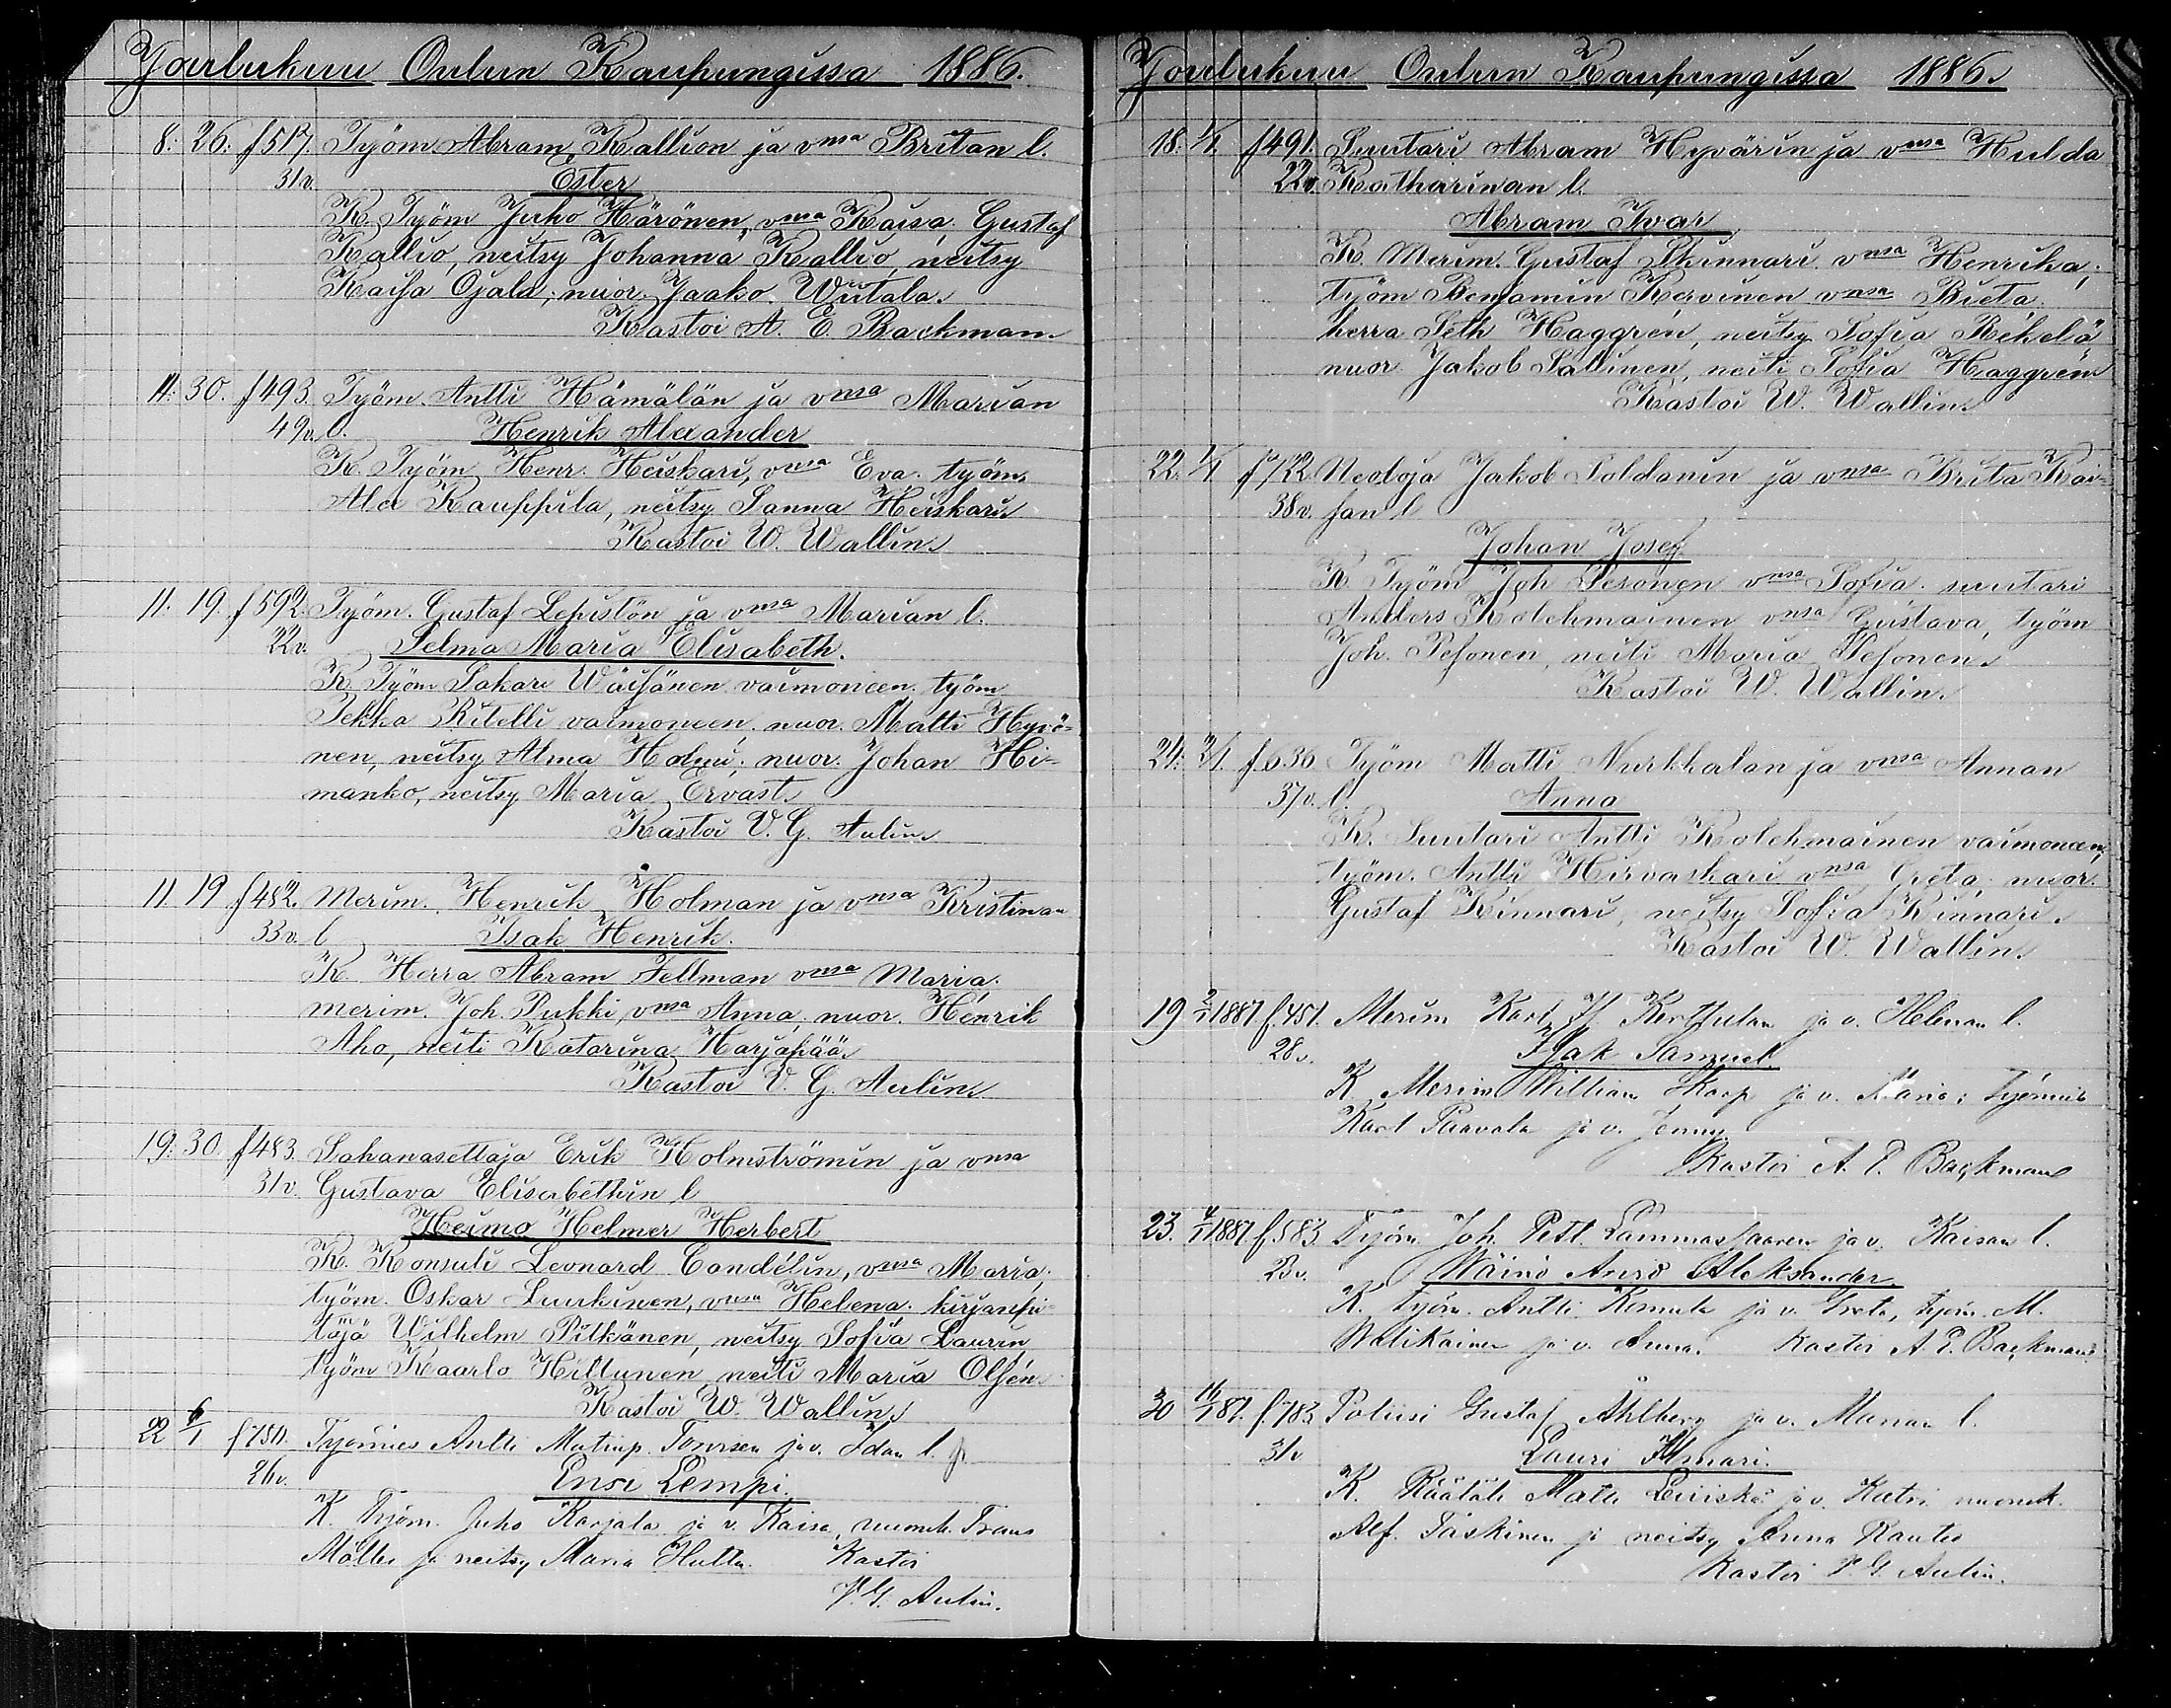 Joulukuu Oulun Kaupungissa 1886.
8. 26. f517. Työm Abram Kallion ja vnsa Britan l.
31v. Ester
K. Työm Juho Härönen, vnsa Kaisa. Gustaf
Kallio, neitsy Johanna Kallio, neitsy
Kaisa Ojala; nuor. Jaako Wiitala.
Kastoi A. E. Backman.
11. 30. f493. Työm. Antti Hämälän ja vnsa Marian
49v. l. Henrik Alexander
K. Työm Henr. Heiskari, vnsa Eva. työm.
Alex Kauppila, neitsy Sanna Heiskari
Kastoi W. Wallin.
11. 19. f592. Työm. Gustaf Lepistön ja vnsa Marian l.
22v. Selma Maria Elisabeth.
K. Työm Sakari Wäisänen vaimoneen. työm
Pekka Ritelli vaimoneen. nuor. Matti Hyvö-
nen, neitsy Alma Holmi; nuor. Johan Hi-
manko, neitsy Maria Ervast.
Kastoi V. G. Aulin.
11. 19 f482. Merim. Henrik Holman ja vnsa Kristinan
33v. l Isak Henrik.
K. Herra Abram Fellman vnsa Maria.
merim. Joh. Pukki, vnsa Anna, nuor. Henrik
Aho, neiti Katarina Harjapää.
Kastoi V. G. Aulin.
19. 30. f483. Sahanasettaja Erik Holmströmin ja vnsa
31v. Gustava Elisabethin l
Heimo Helmer Herbert
K. Konsuli Leonard Candelin, vnsa Maria,
työm. Oskar Luukinen, vnsa Helena. kirjanpi-
täjä Wilhelm Pitkänen, neitsy Sofia Laurin,
työm Kaarlo Hiltunen, neiti Maria Olsén.
Kastoi W. Wallin.
22 6/1 f750. Työmies Antti Matinp. Tonrsen ja v. Idan l.
26v. Ensi Lempi.
K. Työm. Juho Karjala ja v. Kaisa, nuormh. Frans
Möller ja neitsy Maria Hutta. Kastoi
V. G. Aulin.
Joulukuu Oulun Kaupungissa 1886.
18. 1/1 f491. Suutari Abram Hyvärin ja vnsa Hulda
22v. Katharinan l.
Abram Ivar
K. Merim. Gustaf Skinnari vnsa Henrika,
työm Benjamin Kervinen vnsa Brita.
herra Seth Haggrén, neitsy Sofia Rekelä
nuor. Jakob Sallinen, neiti Sofia Haggrén
Kastoi W. Wallin.
22. 1/1 f722 Neuloja Jakob Soldanin ja vnsa Brita Kai-
38v. san l
Johan Josef
K. Työm Joh Pesonen vnsa Sofia. suutari
Anders Kolehmainen vnsa Gustava, työm
Joh. Pesonen, neiti Maria Pesonen.
Kastoi W. Wallin.
24. 2/1. f636 Työm Matti Nurkkalan ja vnsa Annan
37v. l. Anna
K. Suutari Antti Kolehmainen vaimoneen,
työm. Antti Hirvaskari vnsa Greta. nuor.
Gustaf Kinnari, neitsy Sofia Kinnari.
Kastoi W. Wallin.
19 2/1 1887. f.451. Merim Karl H. Kerttulan ja v. Helenan l.
28v. Isak Samuel.
K. Merim William Karp ja v. Maria; työmies
Karl Paavola ja v. Jenny.
Kastoi A. E. Backman
23. 4/1 1887 f.583 Työm. Joh. Pett. Lammassaaren ja v. Kaisan l.
23v. Wäinö Arvid Aleksander.
K. työm. Antti Komula ja v. Greta, työm. M.
Matikainen ja v. Anna. Kastoi A. E. Backman
30 16/1 87. f.783 Poliisi Gustaf Åhlberg ja v. Marian l.
31v Lauri Ilmari.
K. Räätäli Matti Leiviskä ja v. Katri nuormh.
Alf. Taskinen ja neitsy Anna Rautio
Kastoi V. G. Aulin.